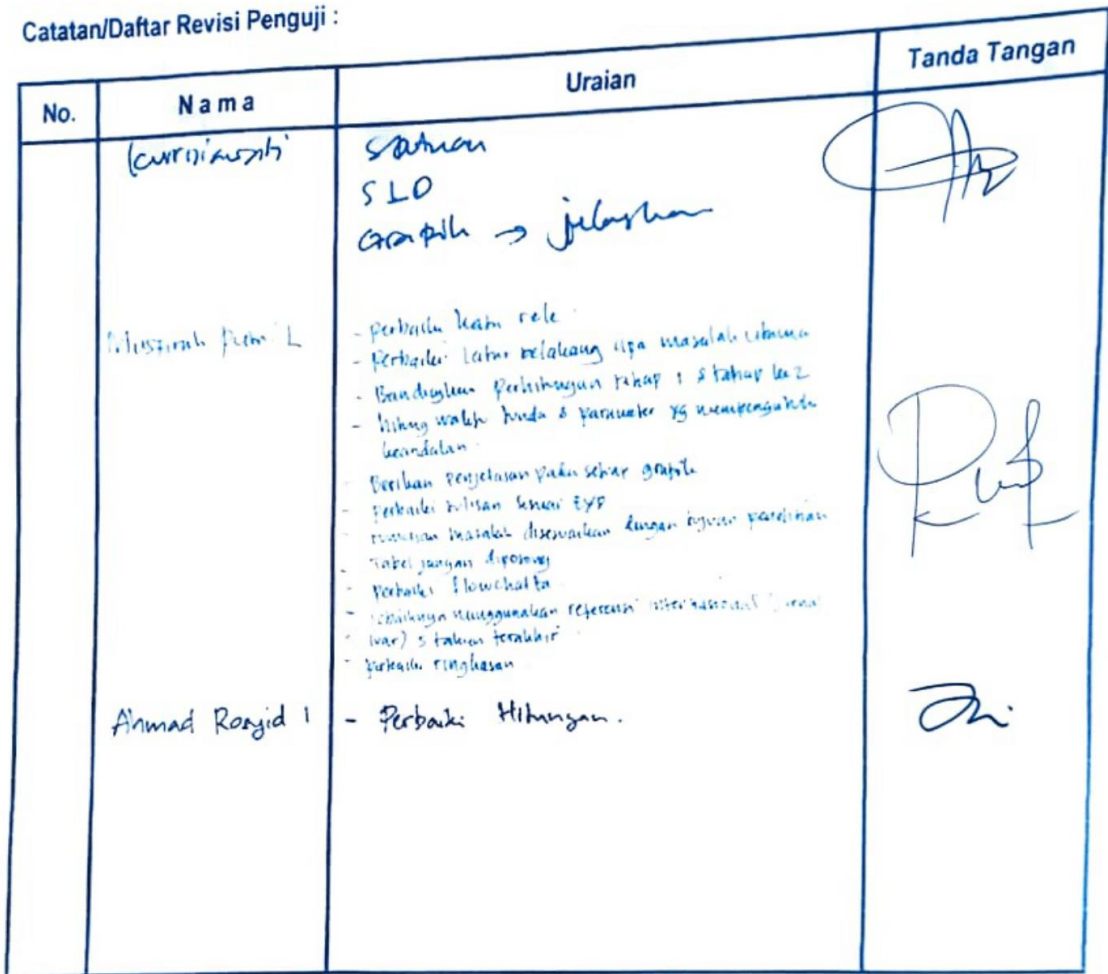 Catatan/Daftar Revisi Penguji :
No. Nama Uraian Tanda Tangan
Kurniawati Satuan
SLO
Grafik → jelaskan
- Perbaiki kata rele
- Perbaiki latar belakang apa masalah utama
- Bandingkan Perhitungan tahap 1 & tahap ke 2
- Hitung waktu tunda & parameter yg mempengaruhi
keandalan
- Berikan Penjelasan pada setiap grafik
- Perbaiki tulisan sesuai EYD
- rumusan masalah disesuaikan dengan tujuan penelitian
- Tabel jangan dipotong
- Perbaiki flowchart
- sebaiknya menggunakan referensi internasional
- 5 tahun terakhir
- Perbaiki ringkasan
Ahmad Rosyid I - Perbaiki Hitungan.